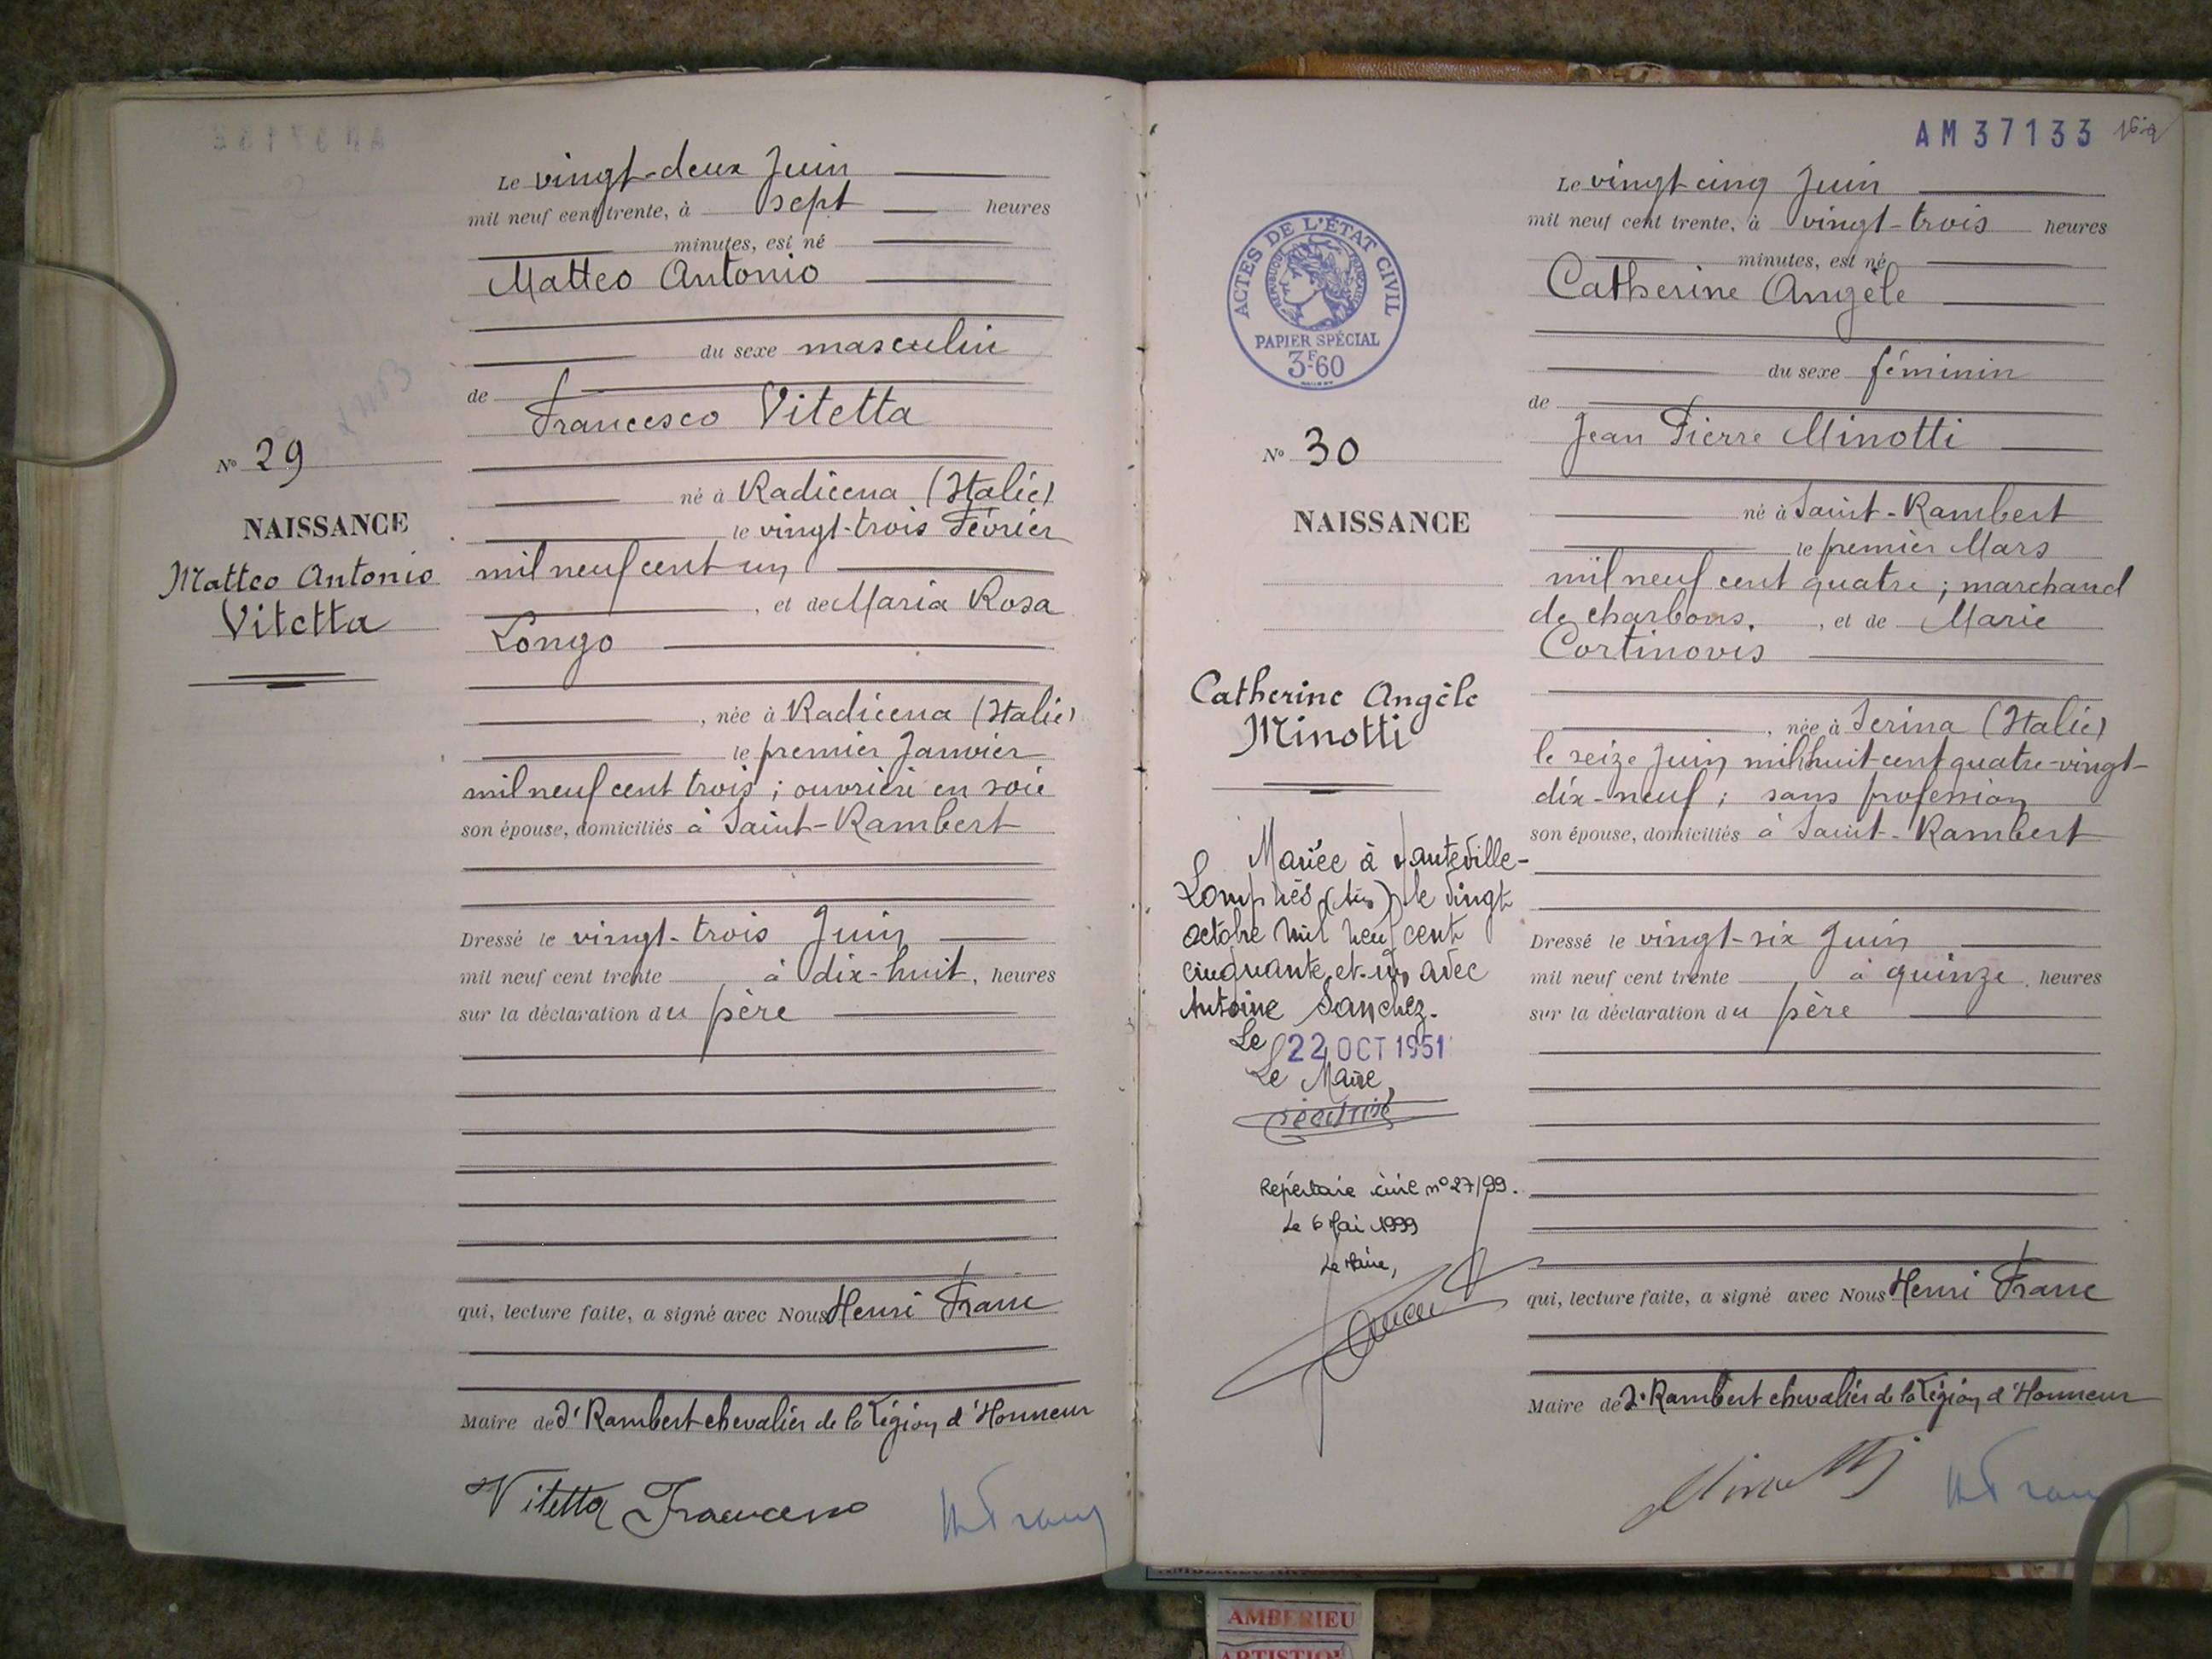 Le vingt-deux Juin
mil neuf cent trente, à sept heures
minutes, est né
Matteo Antonio
du sexe masculin
de
Francesco Vitetta
né à Radicena (Italie)
le vingt-trois Février
mil neuf cent un
, et de Maria Rosa
Longo
, née à Radicena (Italie)
le premier Janvier
mil neuf cent trois ; ouvrière en soie
son épouse, domiciliés à Saint-Rambert
Dressé le vingt-trois Juin
mil neuf cent trente à dix-huit, heures
sur la déclaration du père
qui, lecture faite, a signé avec Nous Henri Franc
Maire de St Rambert chevalier de la Légion d'Honneur
Vitetta Francesco
N° 29
NAISSANCE
Matteo Antonio
Vitetta
AM 37133
ACTES DE L'ÉTAT CIVIL
RÉPUBLIQUE FRANÇAISE
PAPIER SPÉCIAL
3F60
N° 30
NAISSANCE
Catherine Angèle
Minotti
Mariée à Hauteville-
Lompnès (Ain) le vingt
octobre mil neuf cent
cinquante-et-un avec
Antoine Sanchez.
Le 22 OCT 1951
Le Maire,
Répertoire civil n° 27/99.
Le 6 Mai 1999
Le Maire,
Le vingt cinq Juin
mil neuf cent trente, à vingt-trois heures
minutes, est né
Catherine Angèle
du sexe féminin
de
Jean Pierre Minotti
né à Saint-Rambert
le premier Mars
mil neuf cent quatre ; marchand
de charbons. , et de Marie
Cortinovis
, née à Serina (Italie)
le seize Juin mil huit cent quatre-vingt-
dix-neuf ; sans profession
son épouse, domiciliés à Saint-Rambert
Dressé le vingt-six Juin
mil neuf cent trente à quinze, heures
sur la déclaration du père
qui, lecture faite, a signé avec Nous Henri Franc
Maire de St Rambert chevalier de la Légion d'Honneur
Minotti
AMBERIEU